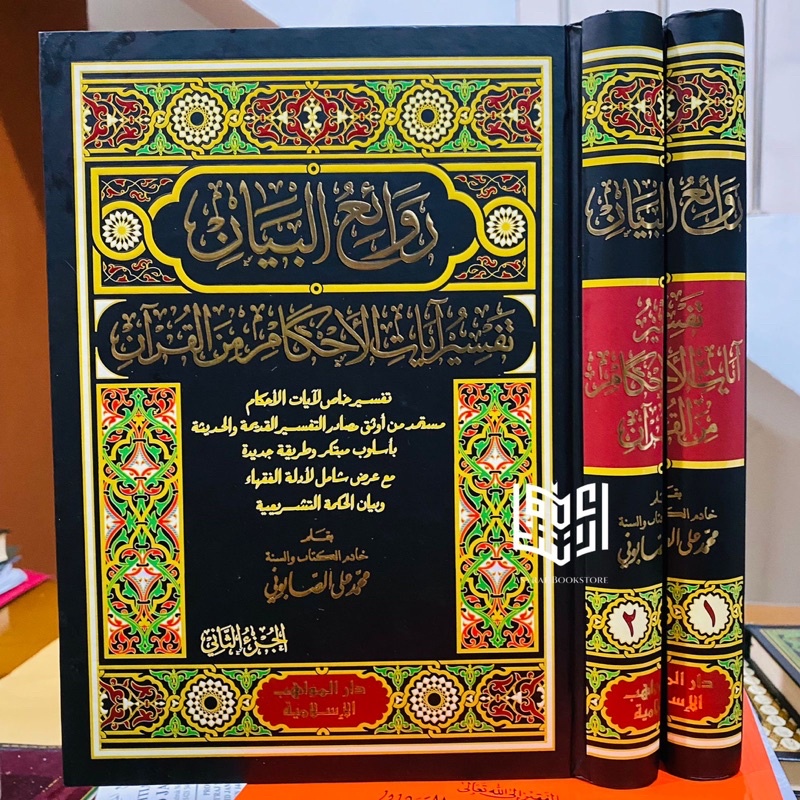 رَوَائِعُ البَيَانِ
تَفْسِيرُ آيَاتِ الأَحْكَامِ مِنَ القُرْآنِ
تفسير خاص لآيات الأحكام
مستمد من أوثق مصادر التفسير القديمة والحديثة
بأسلوب مبتكر وطريقة جديدة
مع عرض شامل لأدلة الفقهاء
وبيان الحكمة التشريعية
بقلم
خادم الكتاب والسنة
محمد علي الصابوني
الجزء الثاني
دار المواهب
الإسلامية
رَوَائِعُ البَيَانِ
تَفْسِيرُ
آيَاتِ الأَحْكَامِ
مِنَ القُرْآنِ
خادم الكتاب والسنة
محمد علي الصابوني
٢
رَوَائِعُ البَيَانِ
تَفْسِيرُ
آيَاتِ الأَحْكَامِ
مِنَ القُرْآنِ
بقلم
خادم الكتاب والسنة
محمد علي الصابوني
١
دار المواهب
الإسلامية
Bookstore
الفقير إلى الله تعالى